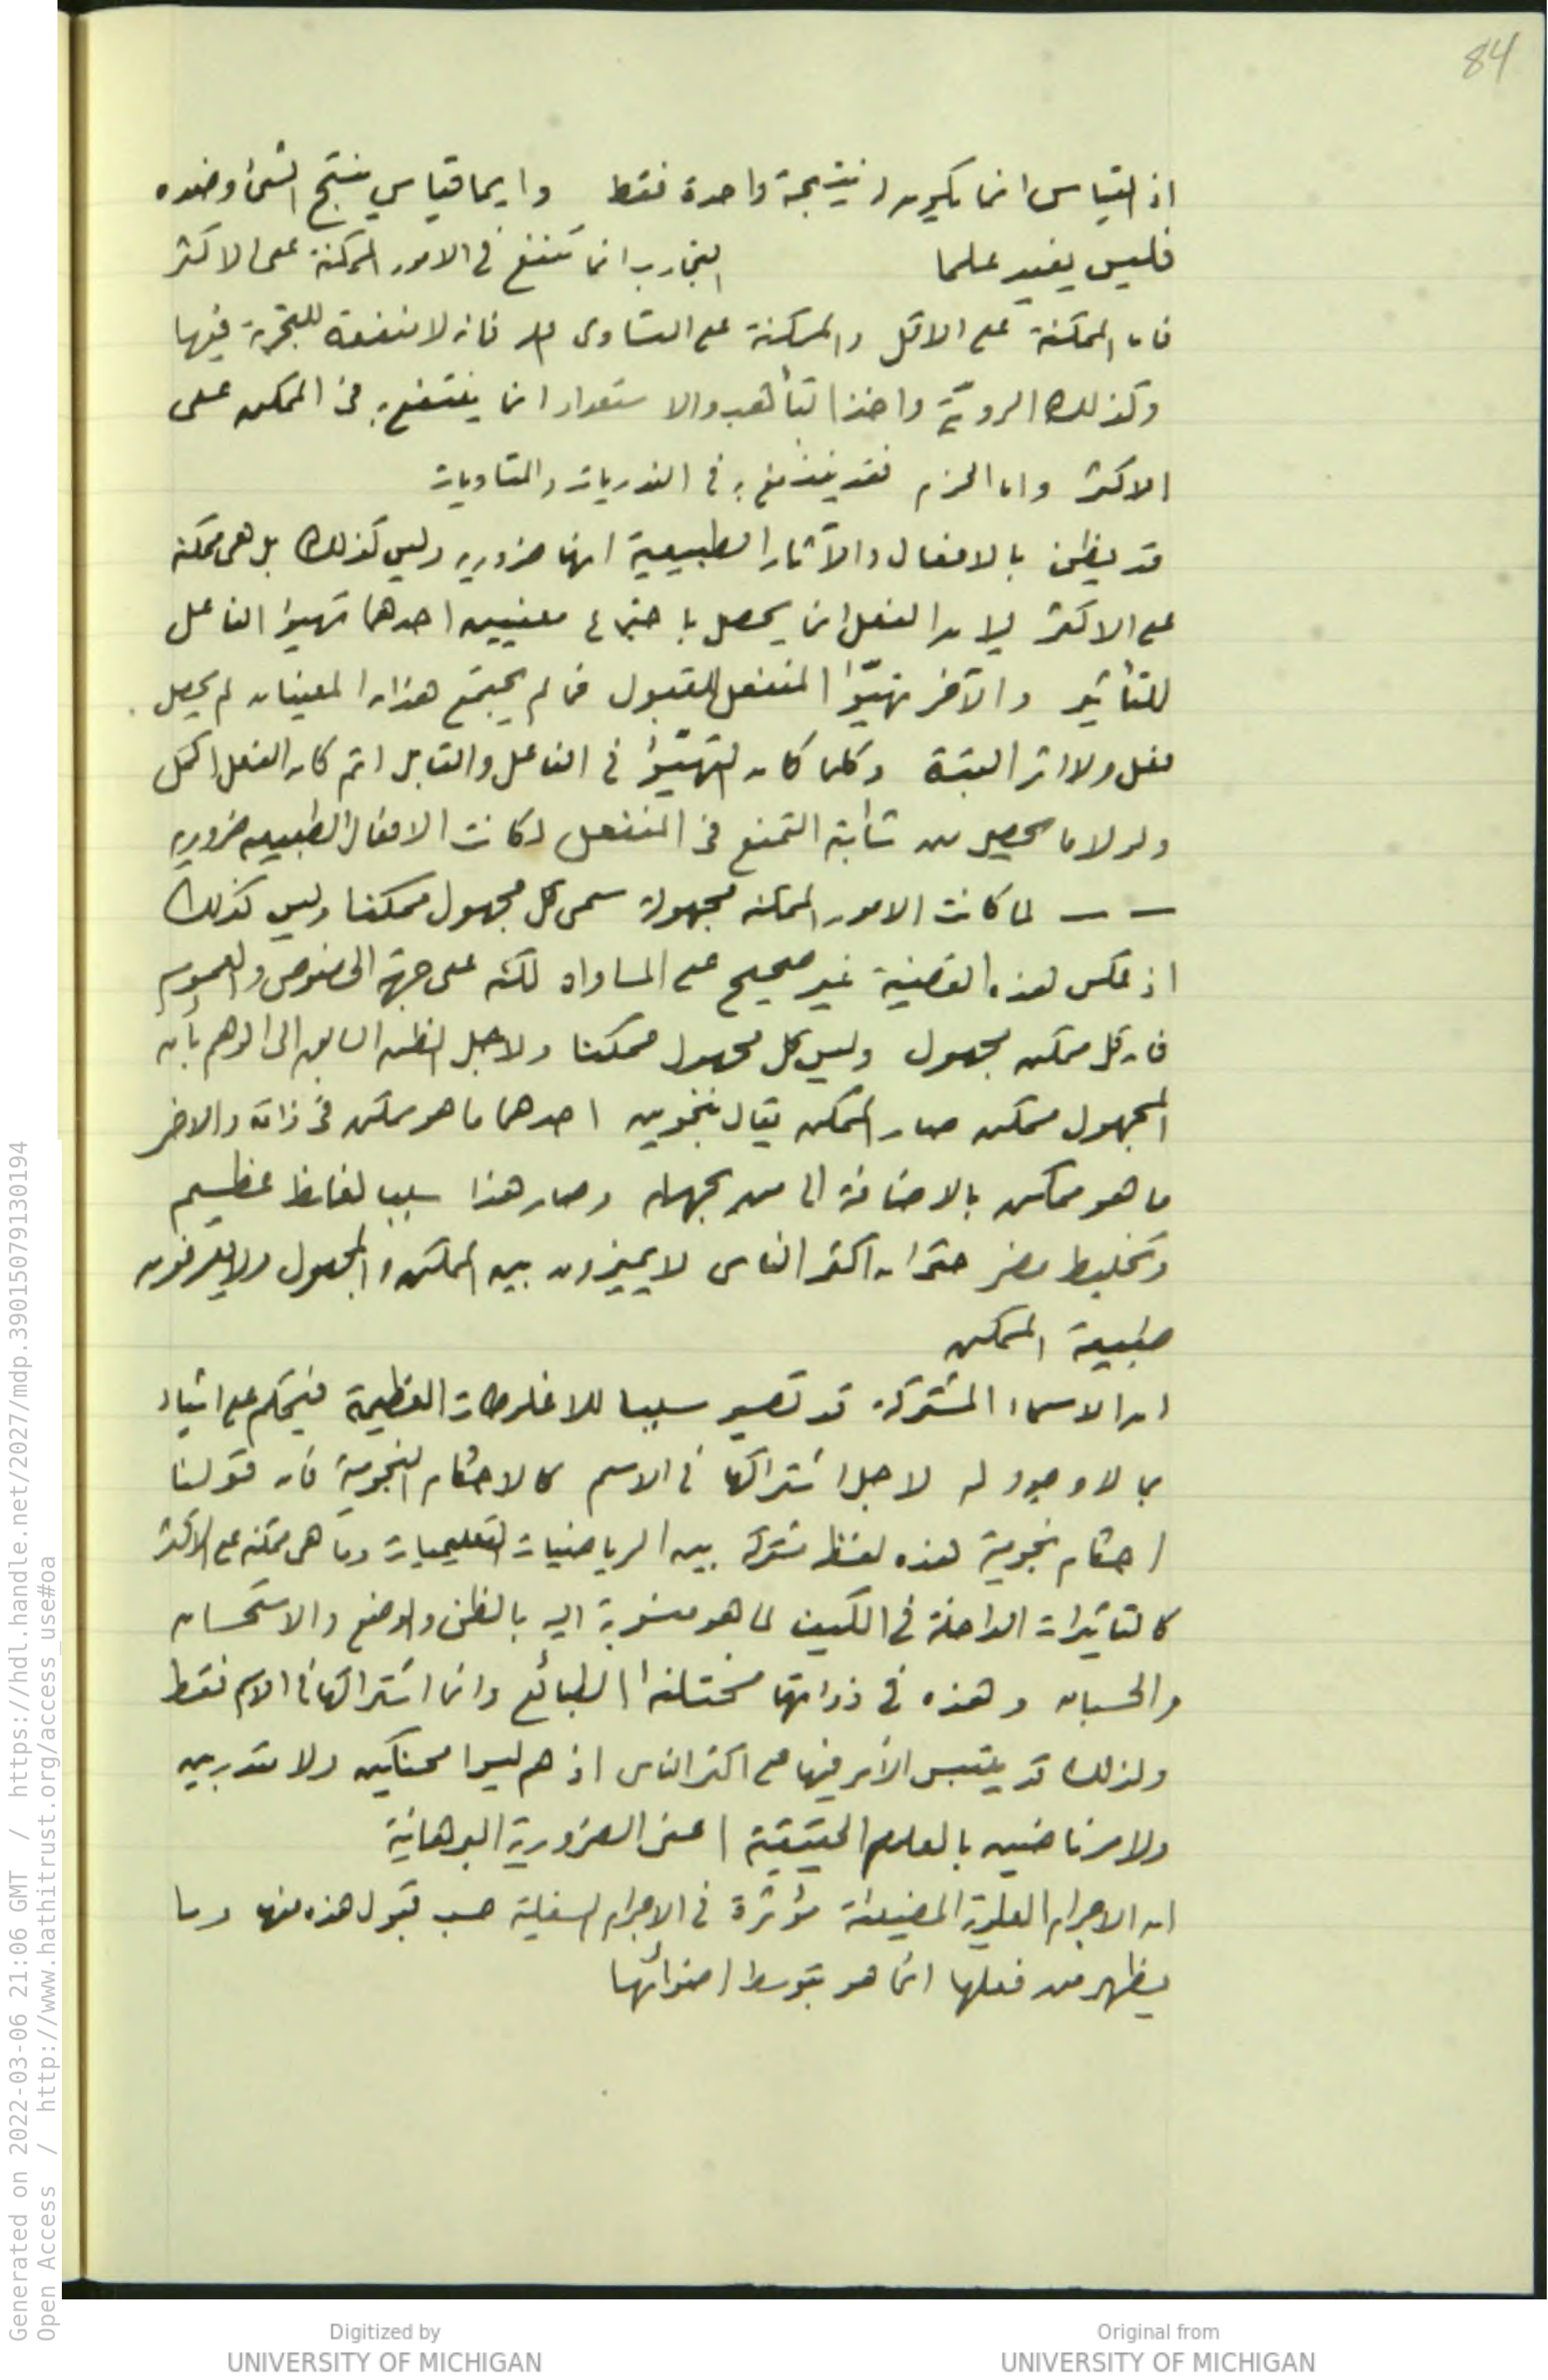 84
اذ القياس انما يكون له نتيجة واحدة فقط وايما قياس ينتج الشئ وضده
فليس يفيد علما التجارب انما تنفع فى الامور الممكنة على الاكثر
فان الممكنة على الاقل والممكنة على التساوى فانه لا منفعة للتجربة فيها
وكذلك الروية واخذ التأهب والاستعداد انما ينتفع به فى الممكن على
الاكثر واما الحزم فقد ينتفع به فى الندريات والمتساويات
قد يظن بالافعال والآثار الطبيعية انها ضروريه وليس كذلك بل هى ممكنة
على الاكثر لان الفعل انما يحصل باجتماع معنيين احدهما تهيؤ الفاعل
للتأثير والآخر تهيّؤ المنفعل للقبول فما لم يجتمع هذان المعنيان لم يحصل
فعل ولا اثر البتة وكلما كان التهيّؤ فى الفاعل والقابل اتم كان الفعل اكمل
ولولا ما يحصل من التمنع فى المنفعل لكانت الافعال الطبيعيه ضروريه
— — لما كانت الامور الممكنه مجهولة سمى كل مجهول ممكنا وليس كذلك
اذ عكس هذه القضية غير صحيح على المساواه لكنه على جهة الخصوص والعموم
فان كل ممكن مجهول وليس كل مجهول ممكنا ولاجل الظن السابق الى الوهم بأن
المجهول ممكن صار الممكن يقال بنحوين احدهما ما هو ممكن فى ذاته والاخر
ما هو ممكن بالاضافة الى من يجهله وصار هذا سببا لغلط عظيم
وتخليط مضر حتى ان اكثر الناس لا يميزون بين الممكن والمجهول ولا يعرفون
طبيعة الممكن
ان الاسماء المشتركة قد تصير سببا للاغلوطات العظيمة فيحكم على اشياء
بما لا وجود له لاجل اشتراكها فى الاسم كالاحكام النجومية فان قولنا
احكام نجومية هذه لفظ مشترك بين الرياضيات التعليميات وما هى ممكنه على الاكثر
كالتاثيرات الداخلة فى الكيف لما هو منسوبة اليه بالظن والوضع والاستحسان
والحسبان وهذه فى ذواتها مختلفة الطبائع وانما اشتراكها فى الاسم فقط
ولذلك قد يلتبس الأمر فيها على اكثر الناس اذ هم ليسوا محنكين ولا متدربين
ولا مرتاضين بالعلوم الحقيقية اعنى الضرورية البرهانية
ان الاجرام العلوية المضيئة مؤثرة فى الاجرام السفلية حسب قبول هذه منها وما
يظهر من فعلها انما هو بتوسط اضوائها
Generated on 2022-03-06 21:06 GMT / https://hdl.handle.net/2027/mdp.39015079130194
Open Access / http://www.hathitrust.org/access_use#oa
Digitized by
UNIVERSITY OF MICHIGAN
Original from
UNIVERSITY OF MICHIGAN